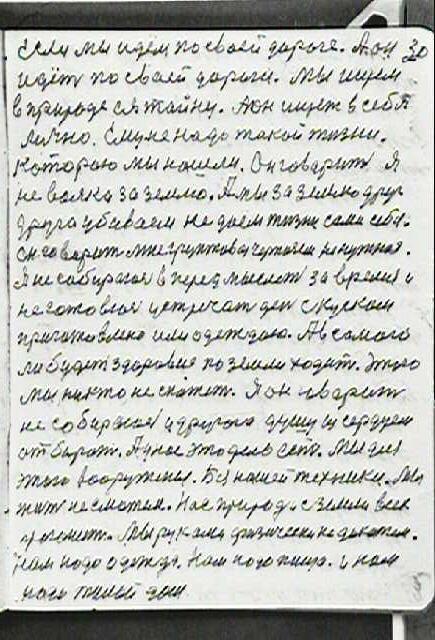 если мы идём по своей дороге. А он 30
идёт по своей дороги. Мы ищем
в природе ся тайну. А он ищет в себя
лично. Ему не надо такой жизни.
которою мы нашли. Он говорит я
не вояка за землю. А мы за землю друг
друга убиваем не даём жизни сами себя.
Он говорит мне групповая не нужная.
Я не собираюся в перед мыслет за время и
не готовлюся встречат ден с куском
приготовлено или одеждаю. А в самого
ли будет здоровия по земли ходит. Этого
мы никто не скажет. Я он говорит
не собираюся у другого душу и сердцем
отбират. А у нас это дело есть. Мы для
этого вооружения. Без нашей техники. Мы
жит не сможем. Нас природа с земли всех
Мы руками физически не
Нам надо одежда. Нам надо пища. и нам
надо жилый дом